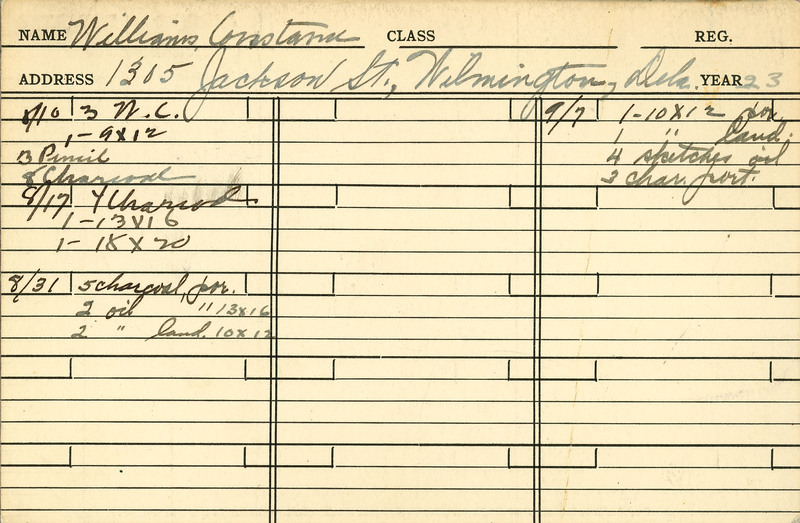 NAME Williams, Constance CLASS REG.
ADDRESS 1305 Jackson St., Wilmington, Dela. YEAR 23
8/10 3 W.C.
1- 9x12
3 Pencil
8 Charcoal
8/17 4 Charcoal
1-13x16
1- 18x20
8/31 5 charcoal, por.
2 oil " 13x16
2 " land. 10x12
9/7 1-10x12 por.
1 " land.
4 sketches oil
3 char. port.